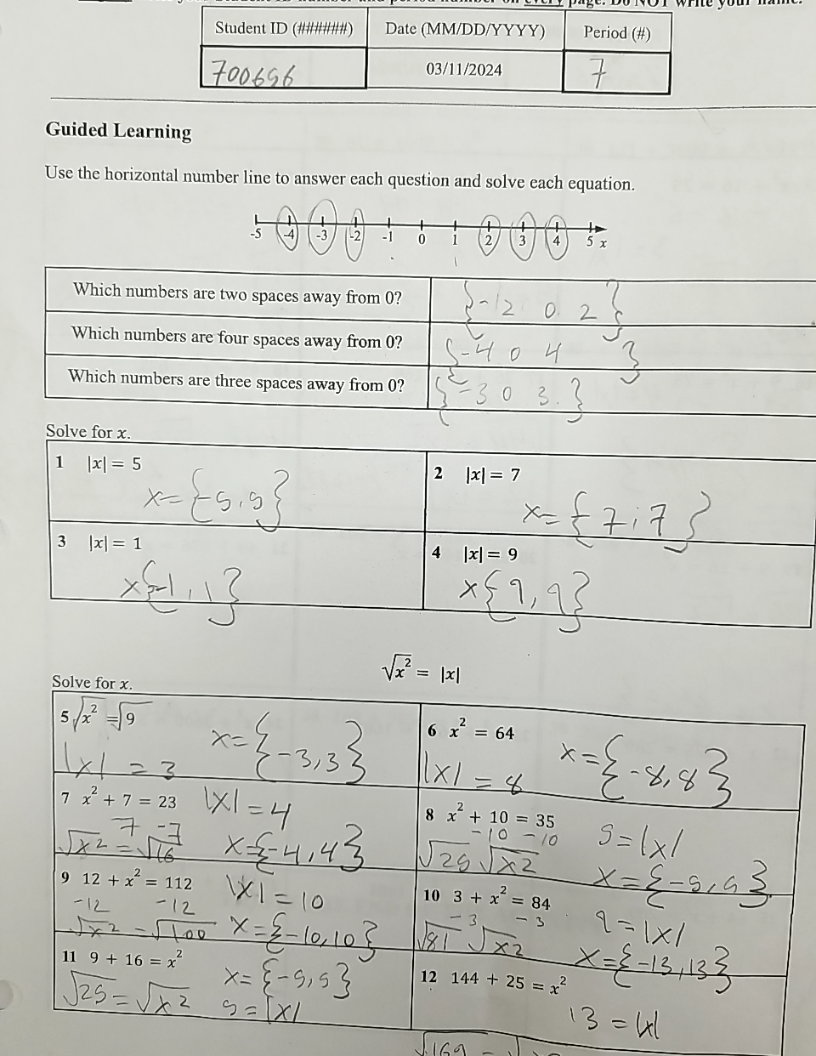 every page. Do NOT write your name.
Student ID (######) Date (MM/DD/YYYY) Period (#)
700656 03/11/2024 7
Guided Learning
Use the horizontal number line to answer each question and solve each equation.
-5 -4 -3 -2 -1 0 1 2 3 4 5 x
Which numbers are two spaces away from 0? {-12 0 2}
Which numbers are four spaces away from 0? {-4 0 4 }
Which numbers are three spaces away from 0? {-3 0 3.}
Solve for x.
1 |x| = 5 2 |x| = 7
x={-5,5} x={7,7}
3 |x| = 1 4 |x| = 9
x{-1,1} x{9,9}
√x² = |x|
Solve for x.
5 √x² = √9 x={-3,3} 6 x² = 64 x={-8,8}
|x| = 3 |x| = 8
7 x² + 7 = 23 |x| = 4 8 x² + 10 = 35 5=|x|
7 -7 -10 -10
√x² = √16 x={-4,4} √25 √x² x={-5,5}
9 12 + x² = 112 |x| = 10 10 3 + x² = 84 9=|x|
-12 -12 -3 -3
√x² = √100 x={-10,10} √81 √x² x={-13,13}
11 9 + 16 = x² x={-5,5} 12 144 + 25 = x²
√25 = √x² 5=|x| 13 = |x|
√169 = √